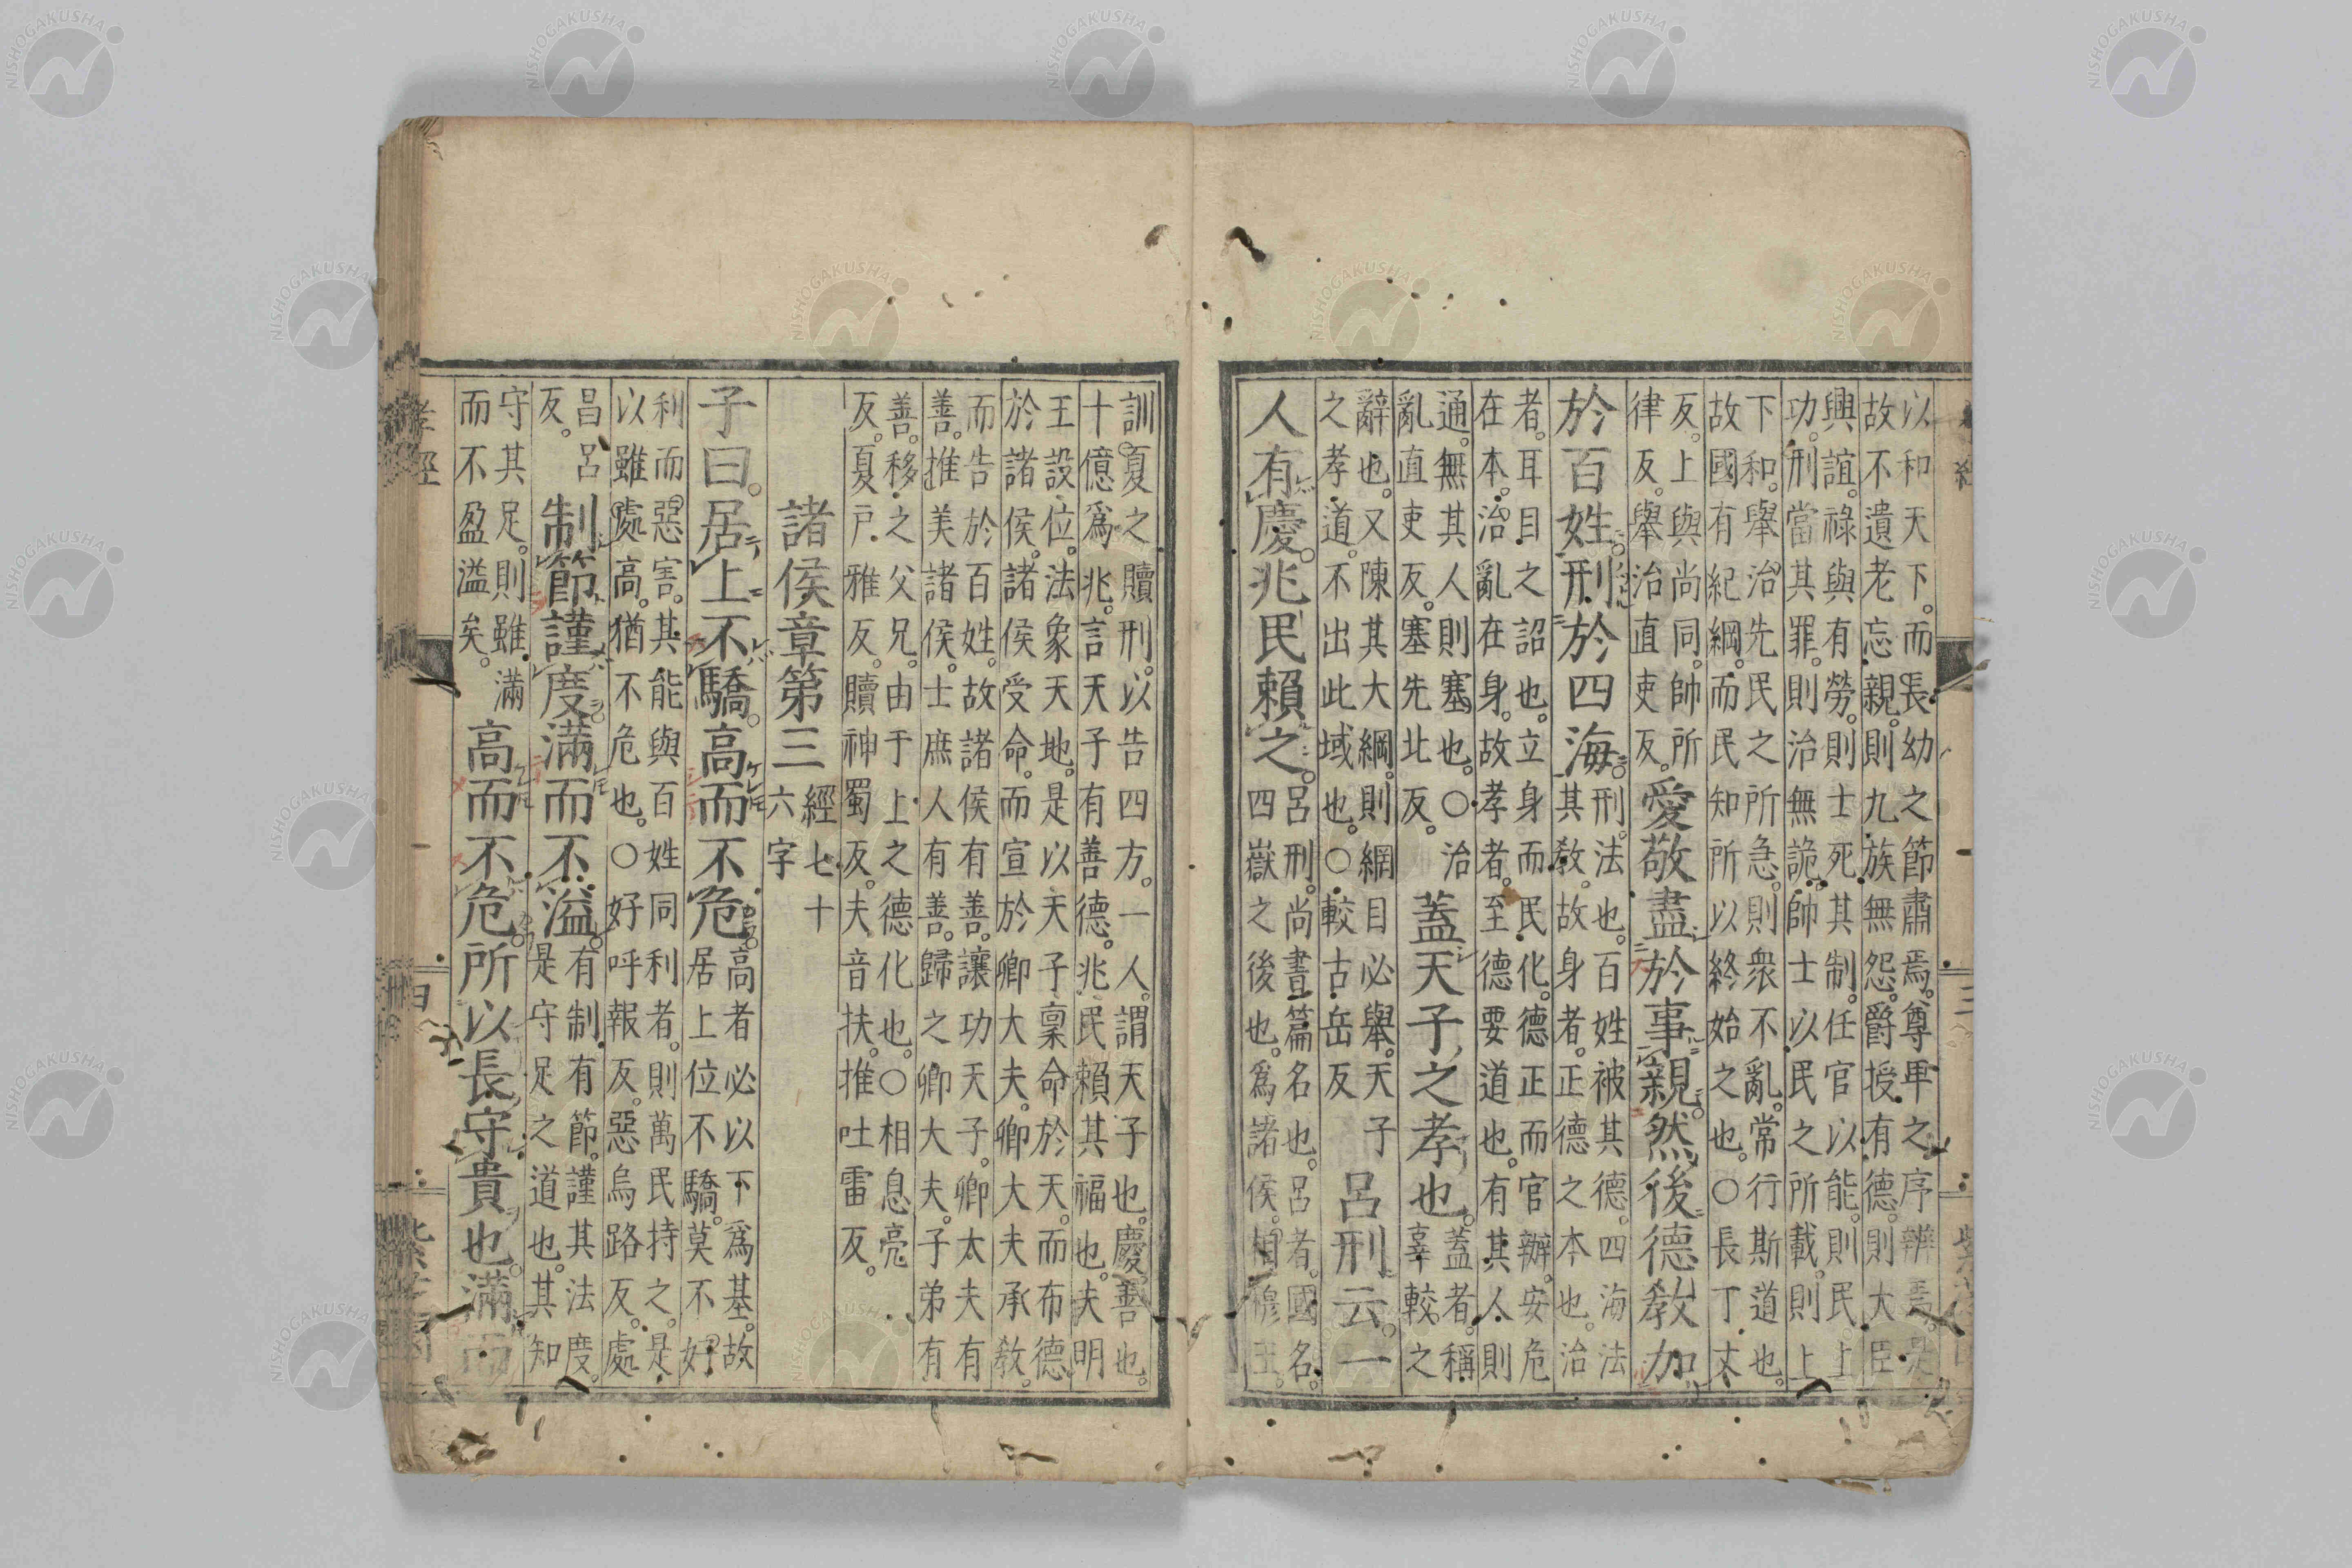 以和天下。而長幼之節肅焉。尊卑之序辨焉。是
故不遺老忘親。則九族無怨。爵授有德。則大臣
興誼。祿與有勞。則士死其制。任官以能。則民上
功。刑當其罪。則治無詭。帥士以民之所載。則上
下和。舉治先民之所急。則衆不亂。常行斯道也。
故國有紀綱。而民知所以終始之也。○長丁丈
反。上與尚同。帥所
律反。舉治直吏反。
愛敬盡於事親。然後德教加
於百姓。刑於四海。
刑。法也。百姓被其德。四海法
其教。故身者。正德之本也。治
者。耳目之詔也。立身而民化。德正而官辦。安危
在本。治亂在身。故孝者。至德要道也。有其人則
通。無其人則塞也。○治
亂直吏反。塞先北反。
蓋天子之孝也。
蓋者。稱
辜較之
辭也。又陳其大綱。則網目必舉。天子
之孝道。不出此域也。○較古岳反
呂刑云。一
人有慶。兆民賴之。
呂刑。尚書篇名也。呂者。國名。
四嶽之後也。爲諸侯。相穆王。
訓夏之贖刑。以告四方。一人。謂天子也。慶。善也。
十億爲兆。言天子有善德。兆民賴其福也。夫明
王設位。法象天地。是以天子稟命於天。而布德
於諸侯。諸侯受命。而宣於卿大夫。卿大夫承教。
而告於百姓。故諸侯有善。讓功天子。卿太夫有
善。推美諸侯。士庶人有善。歸之卿大夫。子弟有
善。移之父兄。由于上之德化也。○相息亮
反。夏戸雅反。贖神蜀反。夫音扶。推吐雷反。
諸侯章第三
經七十
六字
子曰。居上不驕。高而不危。
高者必以下爲基。故
居上位不驕。莫不好
利而惡害。其能與百姓同利者。則萬民持之。是
以雖處高。猶不危也。○好呼報反。惡烏路反。處
昌呂
反。
制節謹度。滿而不溢。
有制有節。謹其法度。
是守足之道也。其知
守其足。則雖滿
而不盈溢矣。
高而不危。所以長守貴也。滿而